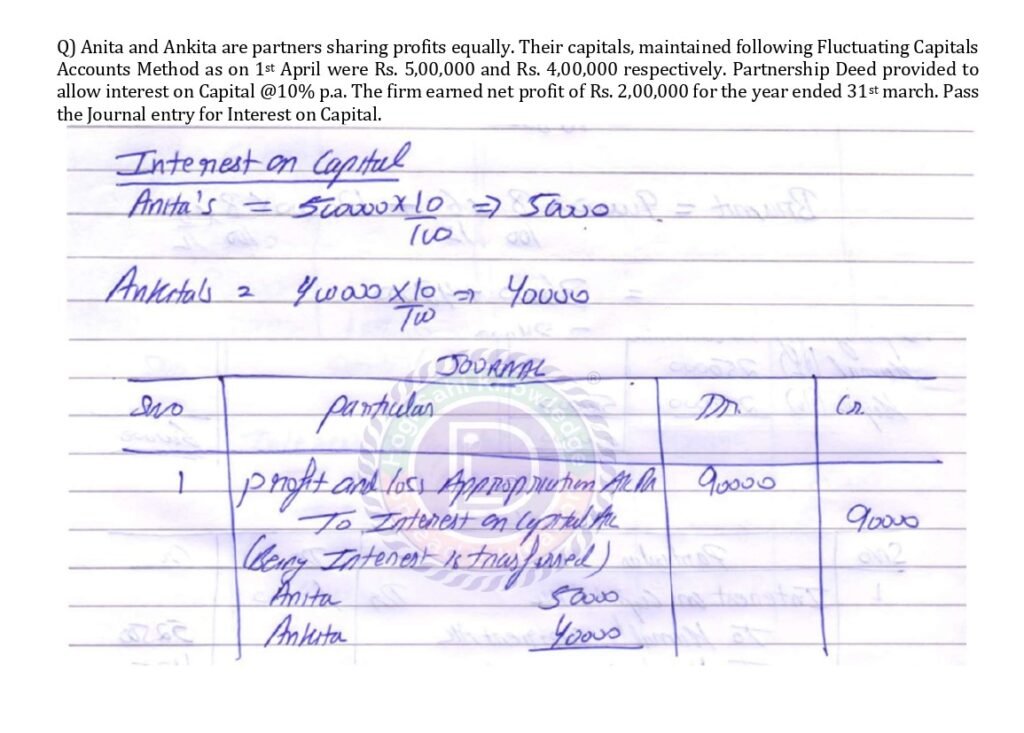 Q) Anita and Ankita are partners sharing profits equally. Their capitals, maintained following Fluctuating Capitals
Accounts Method as on 1st April were Rs. 5,00,000 and Rs. 4,00,000 respectively. Partnership Deed provided to
allow interest on Capital @10% p.a. The firm earned net profit of Rs. 2,00,000 for the year ended 31st march. Pass
the Journal entry for Interest on Capital.
Interest on Capital
Anita's = 500000 x 10/100 => 50000
Ankita's = 400000 x 10/100 => 40000
JOURNAL
Sno particulars Dr. Cr.
1 profit and loss Appropriation A/c Dr 90000
To Interest on Capital A/c 90000
(Being Interest is transferred)
Anita 50000
Ankita 40000